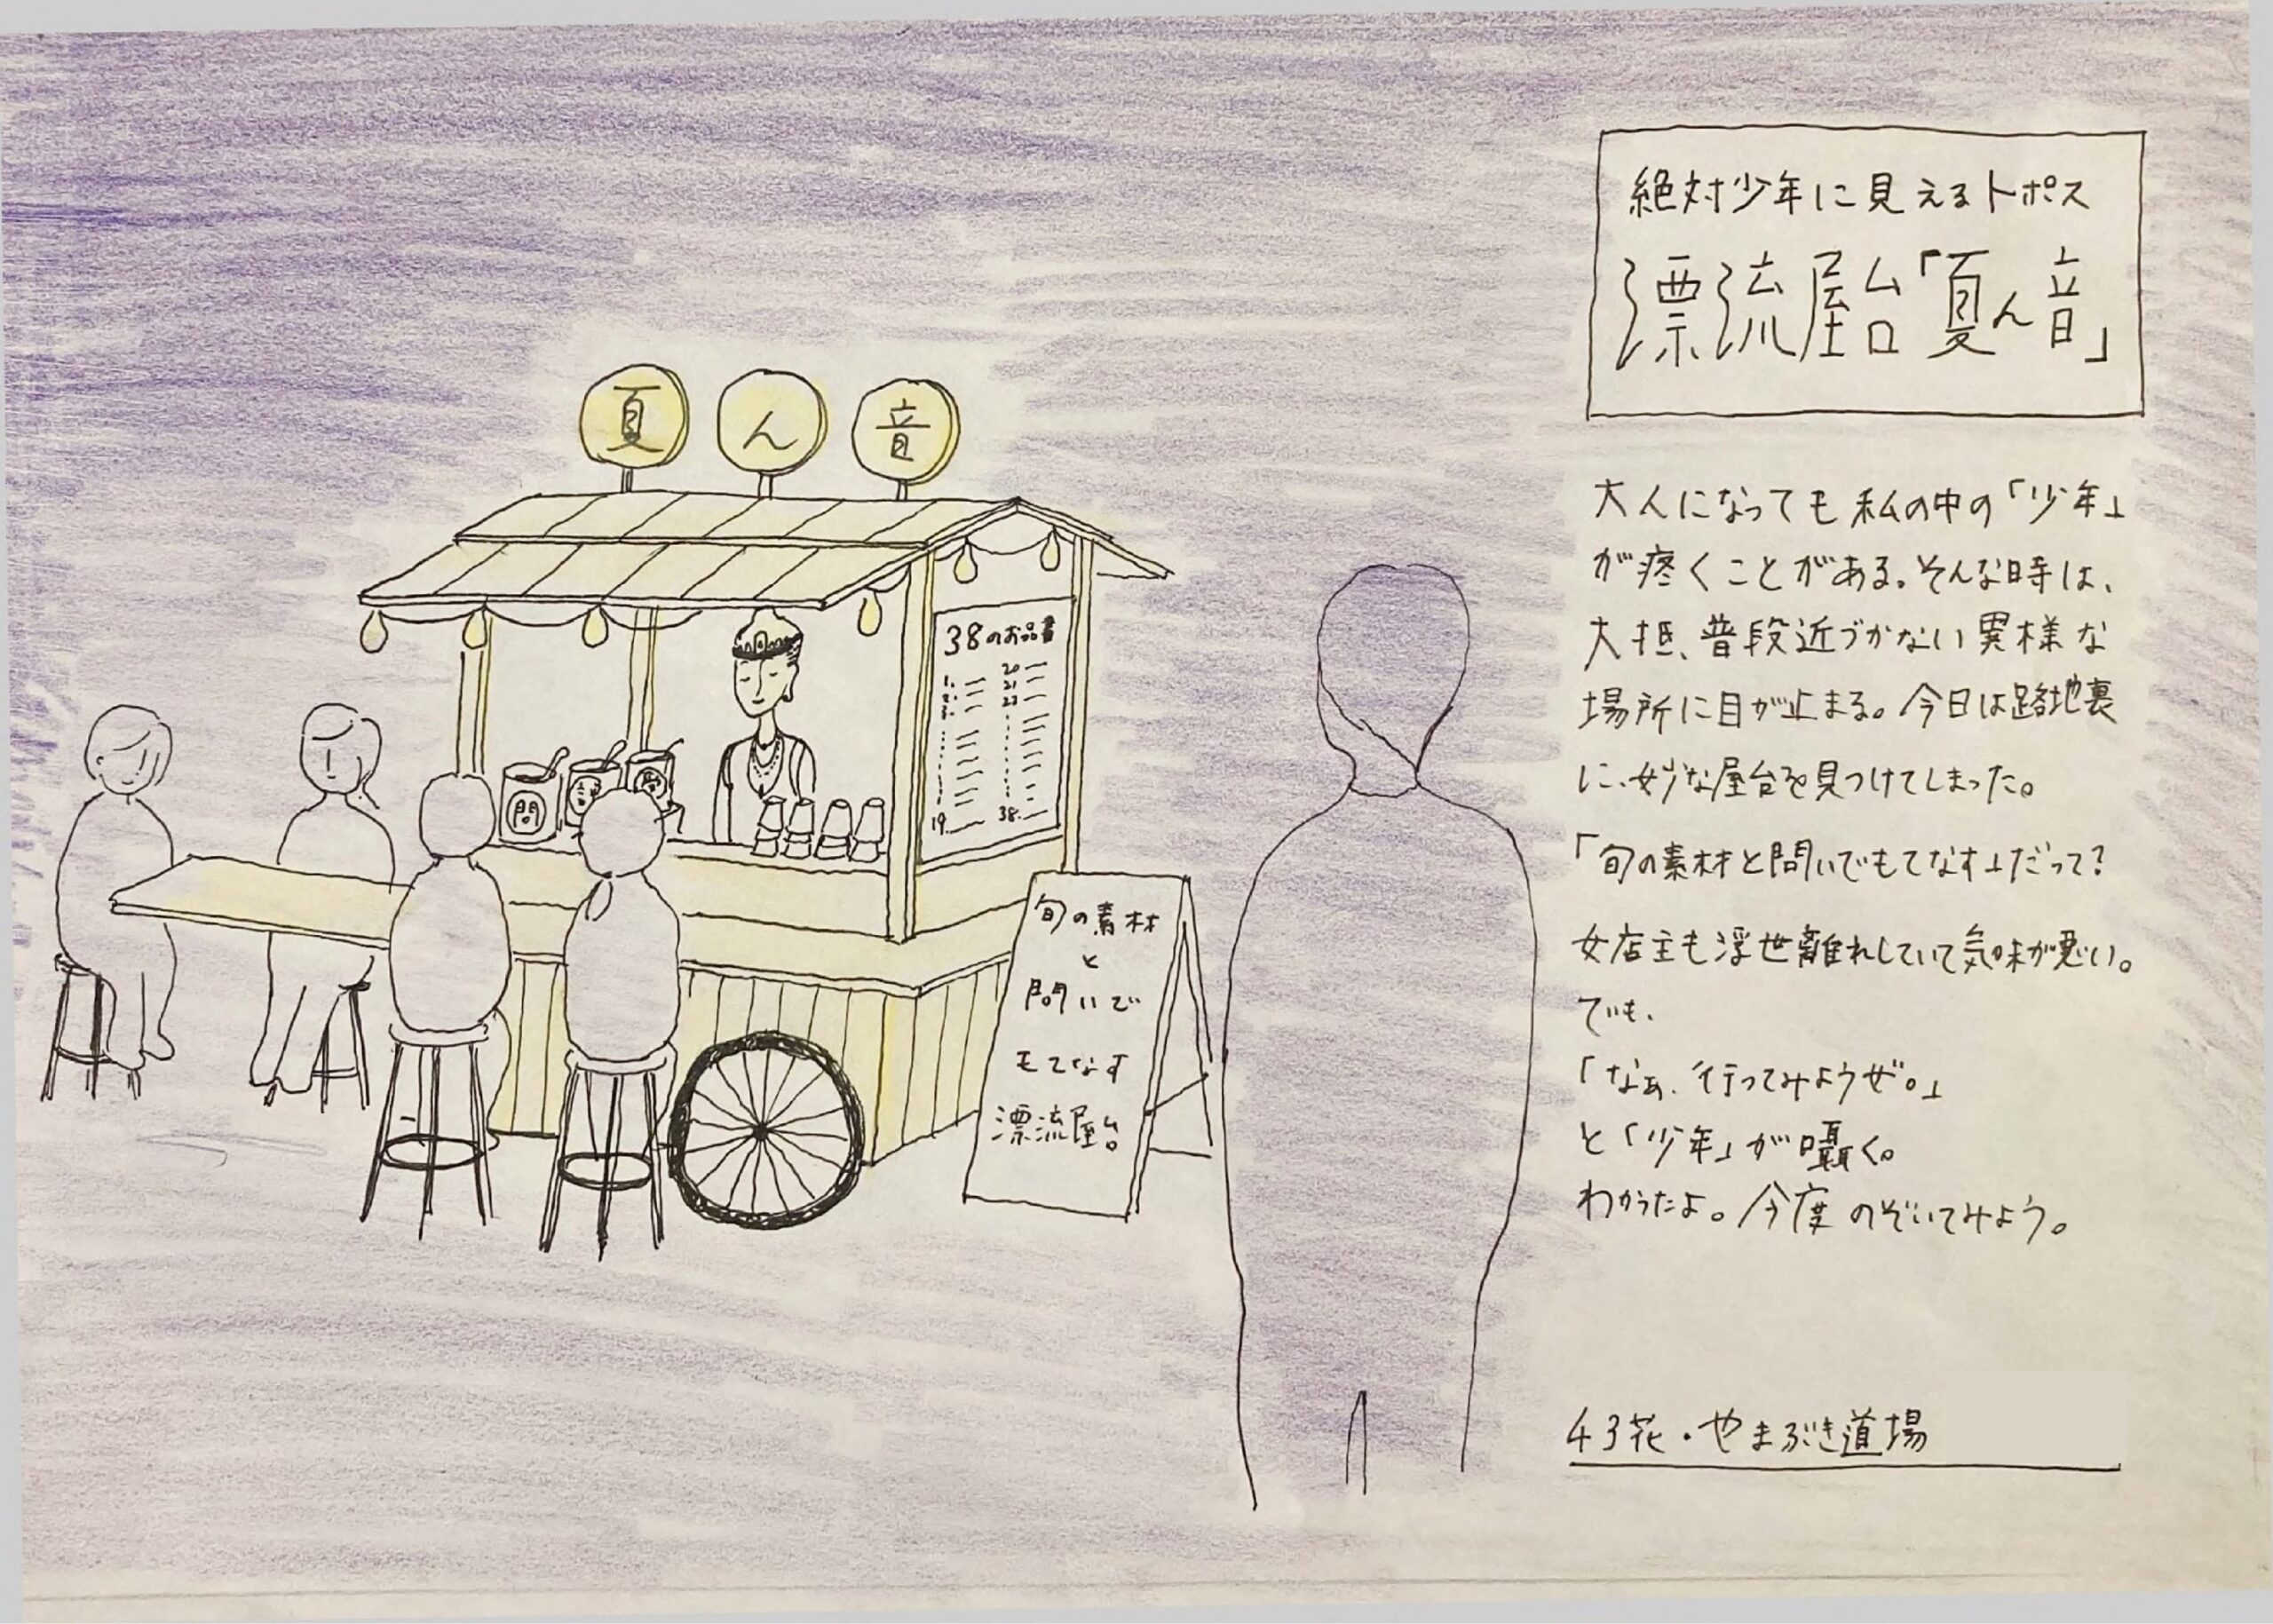 絶対少年に見えるトポス
漂流屋台「夏ん音」
大人になっても私の中の「少年」
が疼くことがある。そんな時は、
大抵、普段近づかない異様な
場所に目が止まる。今日は路地裏
に、妙な屋台を見つけてしまった。
「旬の素材と問いでもてなす」だって?
女店主も浮世離れしていて気味が悪い。
でも、
「なぁ、行ってみようぜ。」
と「少年」が囁く。
わかったよ。今度のぞいてみよう。
43花・やまぶき道場
夏ん音
38のお品書
1.
2.
3.
19.
20
21
22
38.
問
旬の素材
と
問いで
もてなす
漂流屋台